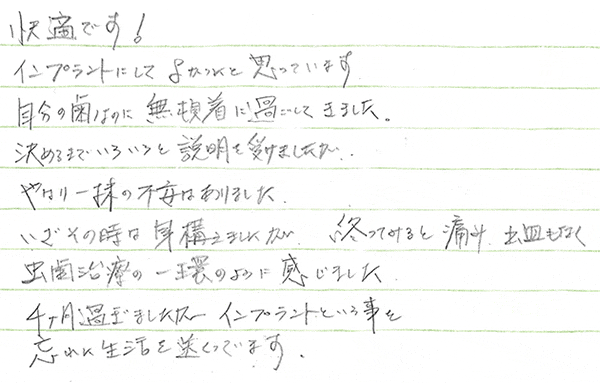 快適です!
インプラントにして よかったと 思っています
自分の歯なのに 無頓着に過ごして きました。
決めるまで いろいろと 説明を 受けましたが、
やはり 一抹の不安は ありました。
いざ その時は 身構えましたが 終ってみると 痛み 出血もなく
虫歯治療の 一環のように 感じました
4ヶ月過ぎましたが インプラントという事を
忘れ 生活を 送っています。